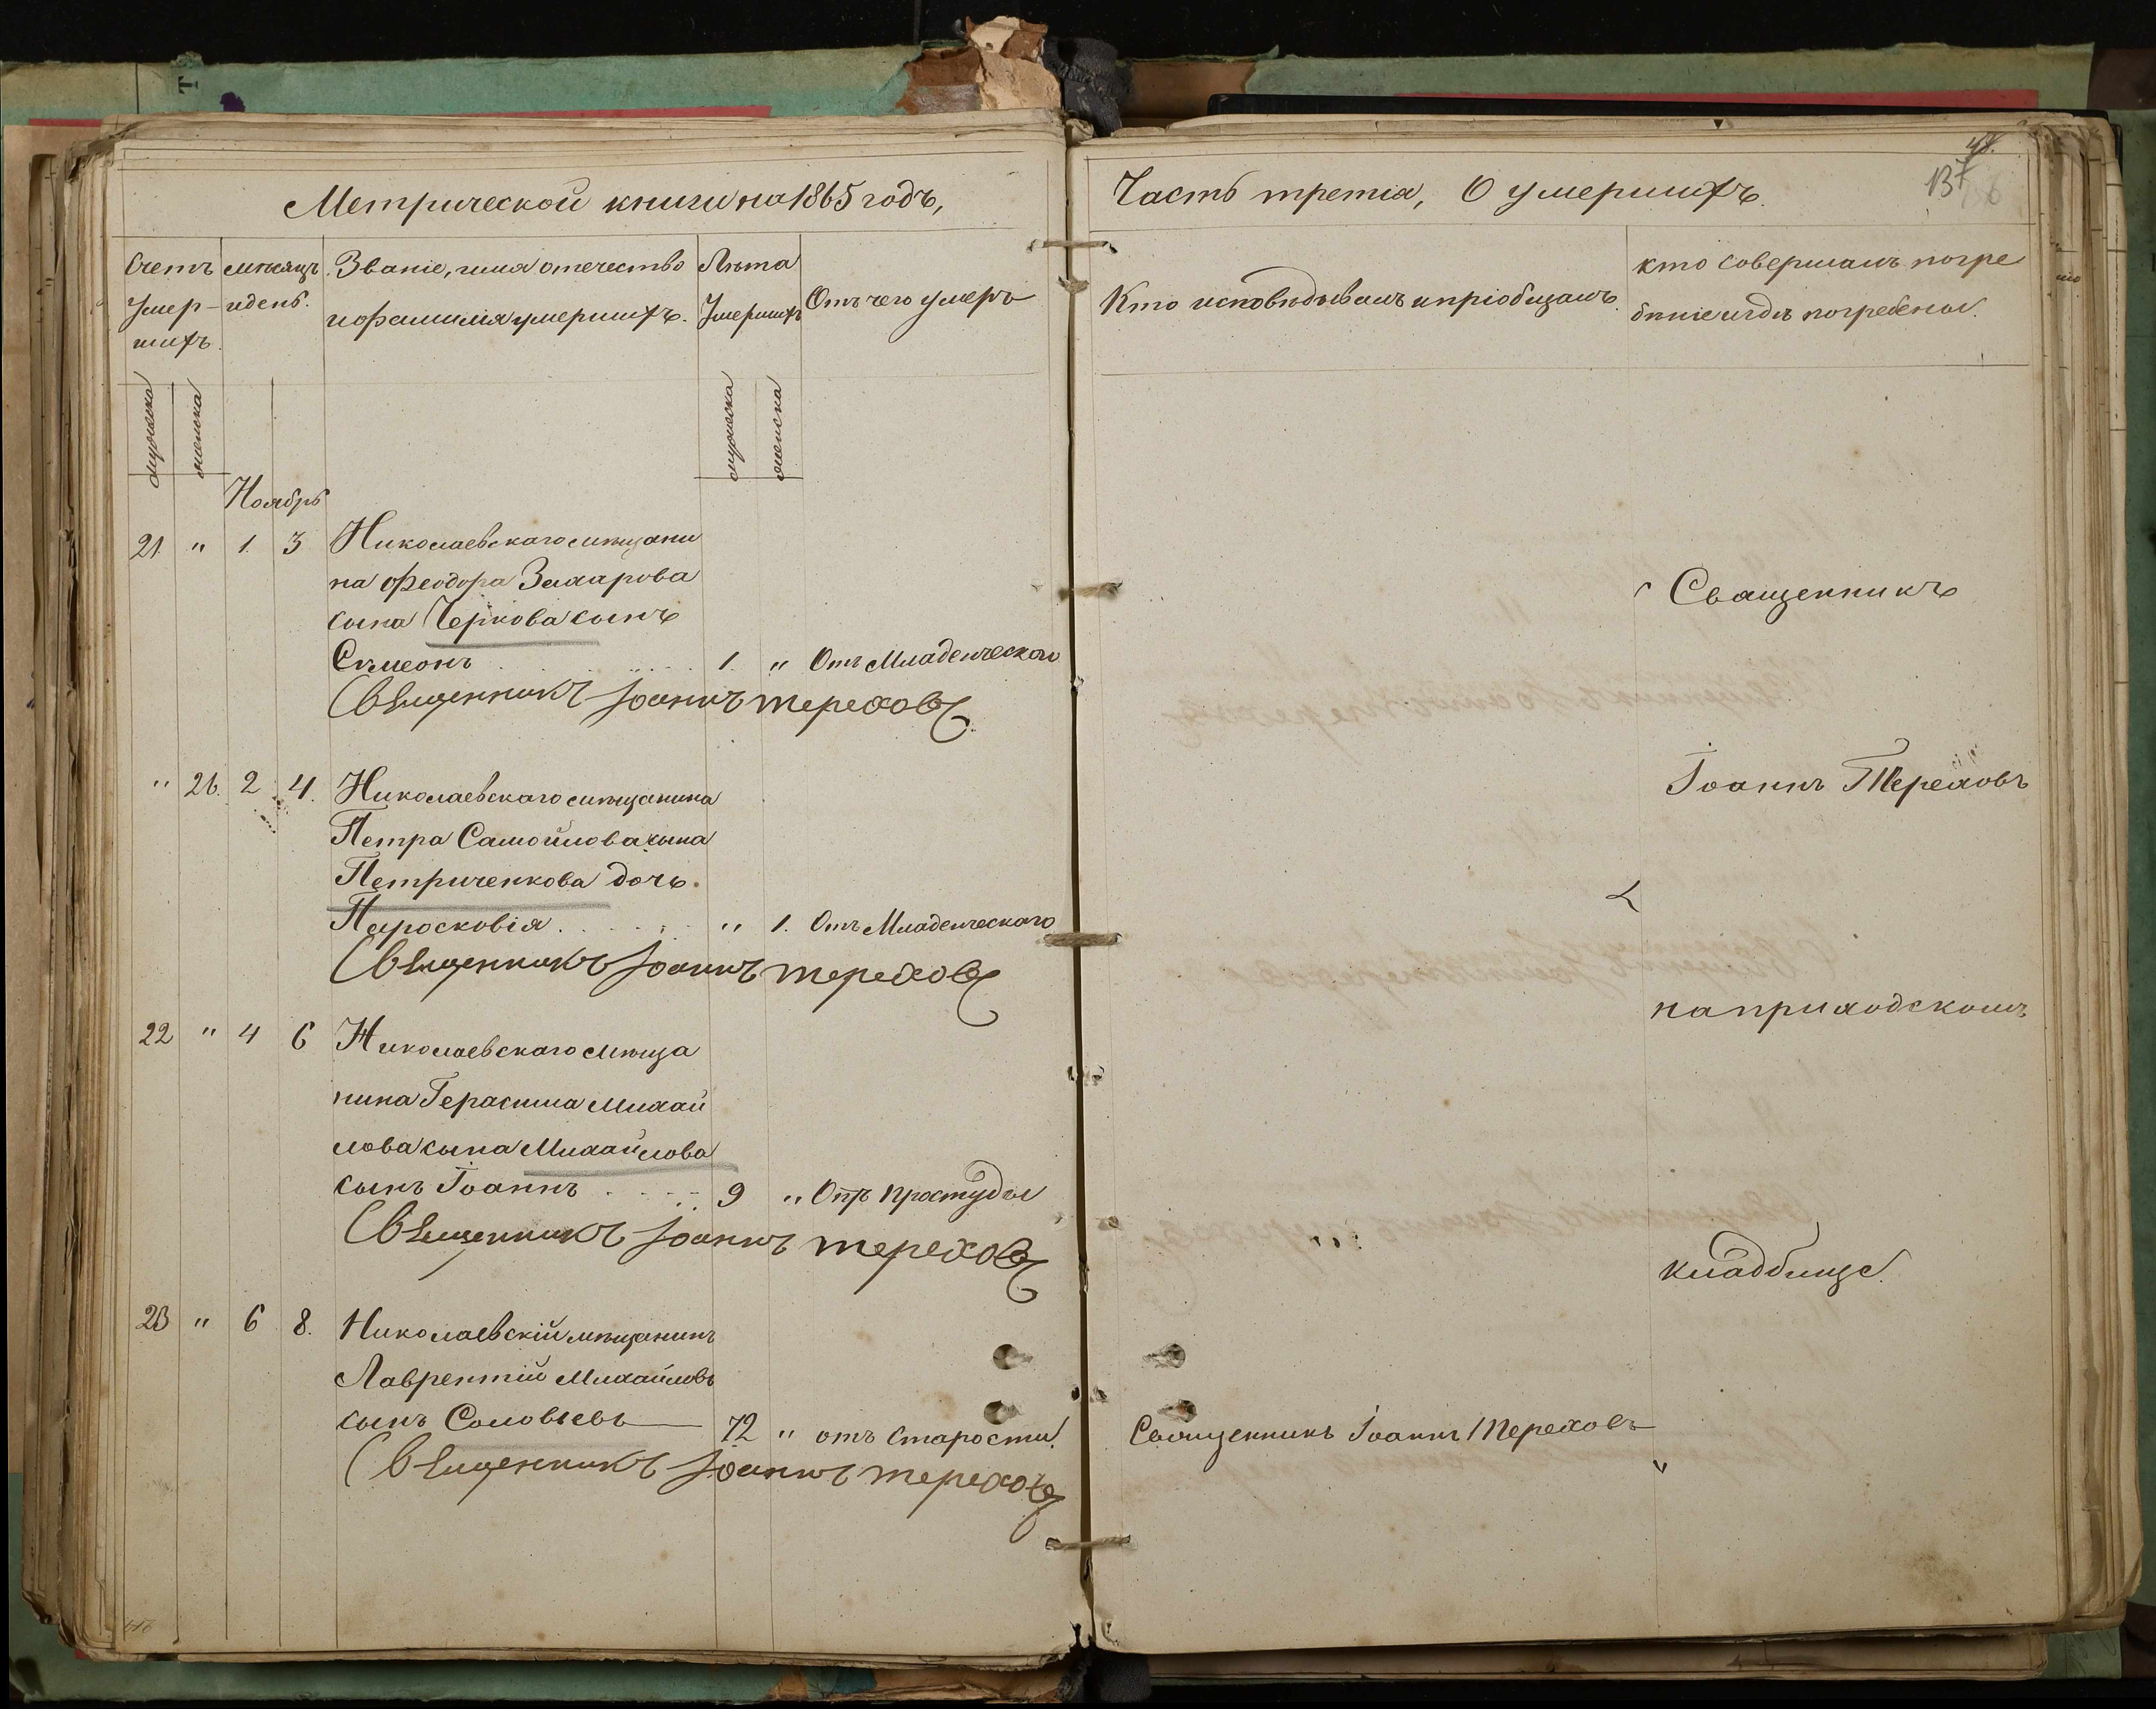 Метрической книги на 1865 годъ,
Счетъ Умер-шихъ.
мѣсяцъ и день.
Званіе, имя отечество
и фамилия умершихъ.
Лѣта
Умершихъ
Отъ чего умеръ
мужеска
женска
мужеска
женска
Ноябрь
21 " 1. 3 Николаевскаго мѣщани
на Феодора Захарова
сына Чернова сынъ
Сѵмеонъ 1. " Отъ Младенческаго
Священникъ Іоаннъ Тереховъ
" 26. 2 4. Николаевскаго мѣщанина
Петра Самойлова сына
Петриченкова дочь.
Парасковія " 1. Отъ Младенческаго
Священникъ Іоаннъ Тереховъ
22 " 4 6 Николаевскаго мѣща
нина Герасима Михай
лова сына Михайлова
сынъ Іоаннъ 9 " Отъ простуды
Священникъ Іоаннъ Тереховъ
23 " 6 8. Николаевскій мѣщанинъ
Лаврентій Михайловъ
сынъ Соловьевъ 72 " отъ старости.
Священникъ Іоаннъ Тереховъ
Часть третія, О умершихъ.
48.
137
Кто исповѣдывалъ и пріобщалъ.
кто совершалъ погре
бѣніе и гдѣ погребены.
Священникъ
Іоаннъ Тереховъ
на приходскомъ
кладбище.
Священникъ Іоаннъ Тереховъ "